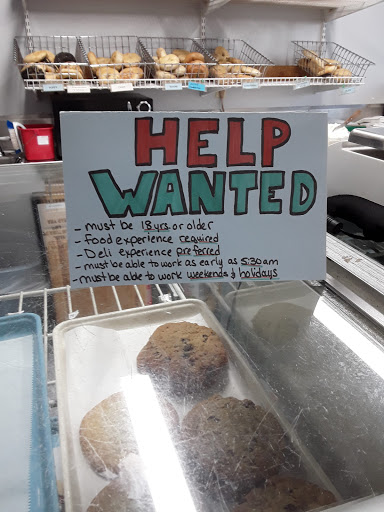 HELP
WANTED
- must be 18yrs or older
- food experience required
- Deli experience preferred
- must be able to work as early as 5:30am
- must be able to work weekends & holidays